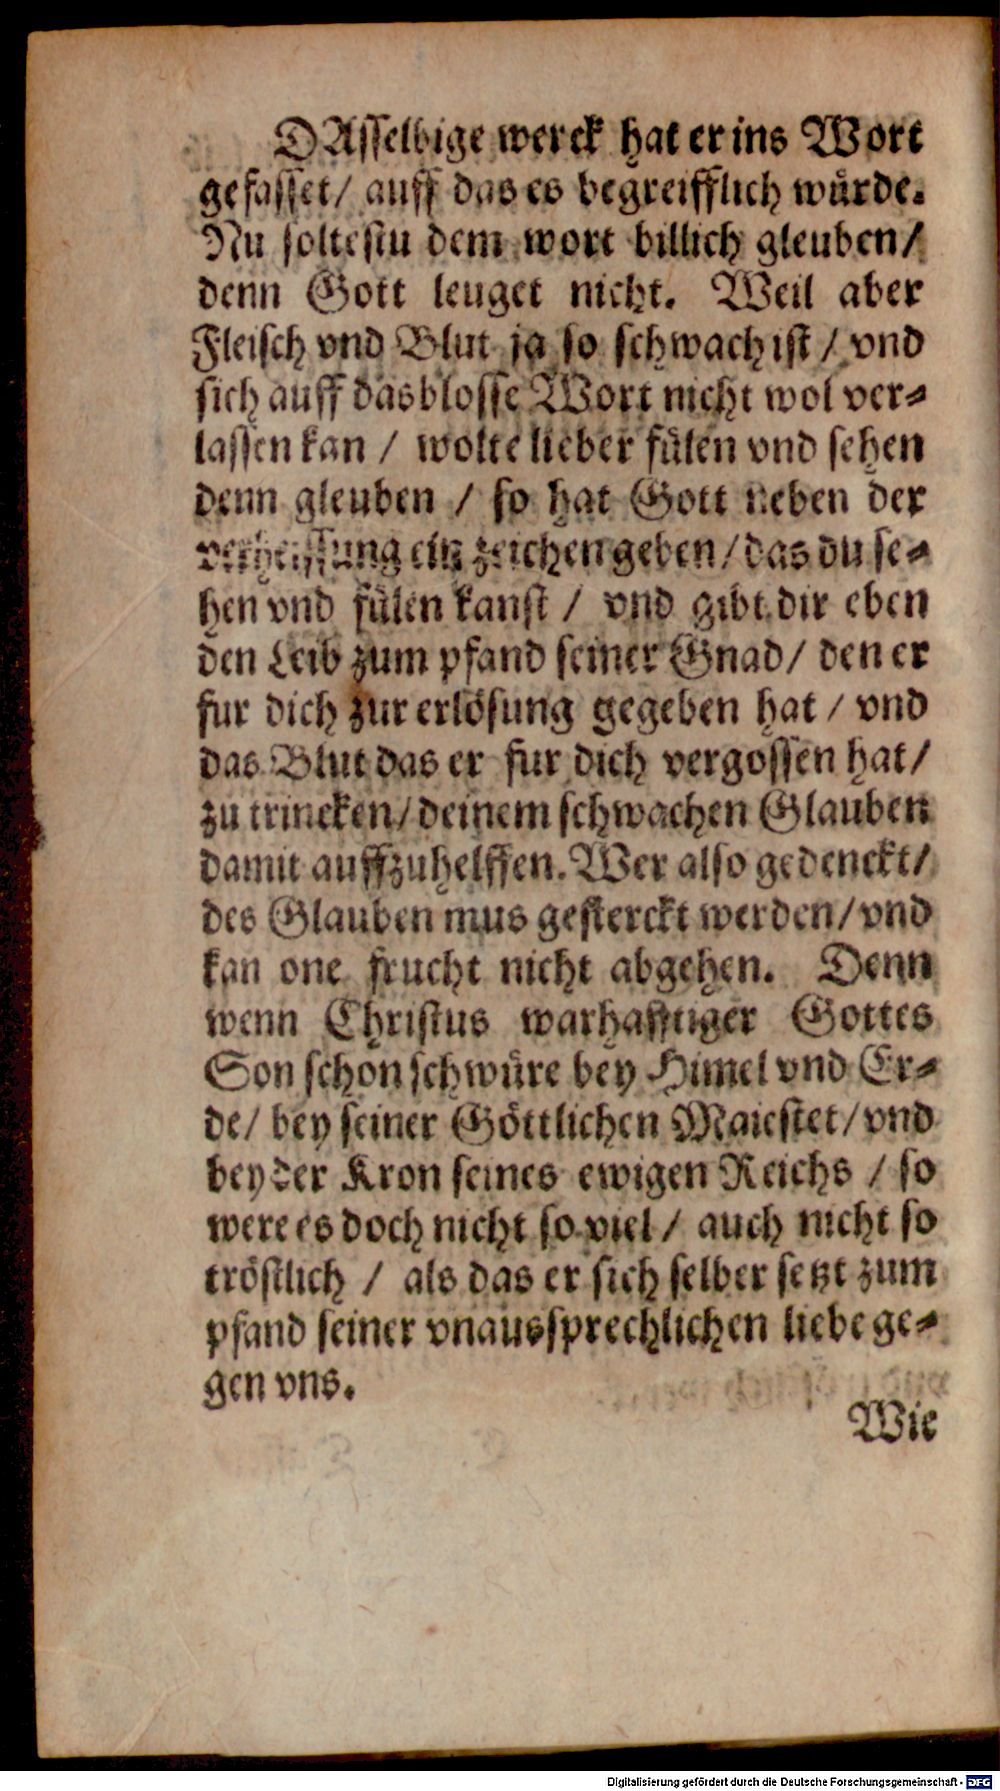 DAsselbige werck hat er ins Wort
gefasset/ auff das es begreifflich würde.
Nu soltestu dem wort billich gleuben/
denn Gott leuget nicht. Weil aber
Fleisch vnd Blut ja so schwach ist / vnd
sich auff das blosse Wort nicht wol ver-
lassen kan / wolte lieber fülen vnd sehen
denn gleuben / so hat Gott neben der
verheissung ein zeichen geben/ das du se-
hen vnd fülen kanst / vnd gibt dir eben
den Leib zum pfand seiner Gnad/ den er
fur dich zur erlösung gegeben hat / vnd
das Blut das er fur dich vergossen hat/
zu trincken/ deinem schwachen Glauben
damit auffzuhelffen. Wer also gedenckt/
des Glauben mus gesterckt werden/ vnd
kan one frucht nicht abgehen. Denn
wenn Christus warhafftiger Gottes
Son schon schwüre bey Himel vnd Er-
de/ bey seiner Göttlichen Maiestet/ vnd
bey der Kron seines ewigen Reichs / so
were es doch nicht so viel / auch nicht so
tröstlich / als das er sich selber setzt zum
pfand seiner vnaussprechlichen liebe ge-
gen vns.
Wie
Digitalisierung gefördert durch die Deutsche Forschungsgemeinschaft - DFG